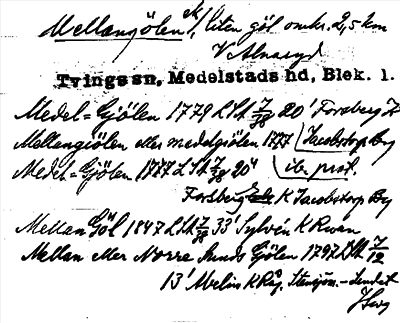 Mellangölen, liten göl omkr. 2,5 km
V Alnaryd
Tvings sn, Medelstads hd, Blek. l.
Medel=Gjölen 1779 LSA 7/38 20' Forsberg
Mellangiölen eller medelgiölen 1777 Jacobstorp By
Medel=Gjölen 1777 LSA 7/38 20' ib. prot.
Forsberg K Jacobstorp By
Mellan Göl 1847 LSA 7/38 33' Sylvén K
Mellan eller Norra Gjölen 1797 LSA 7/12
13' Melin K Råg. Stensjön